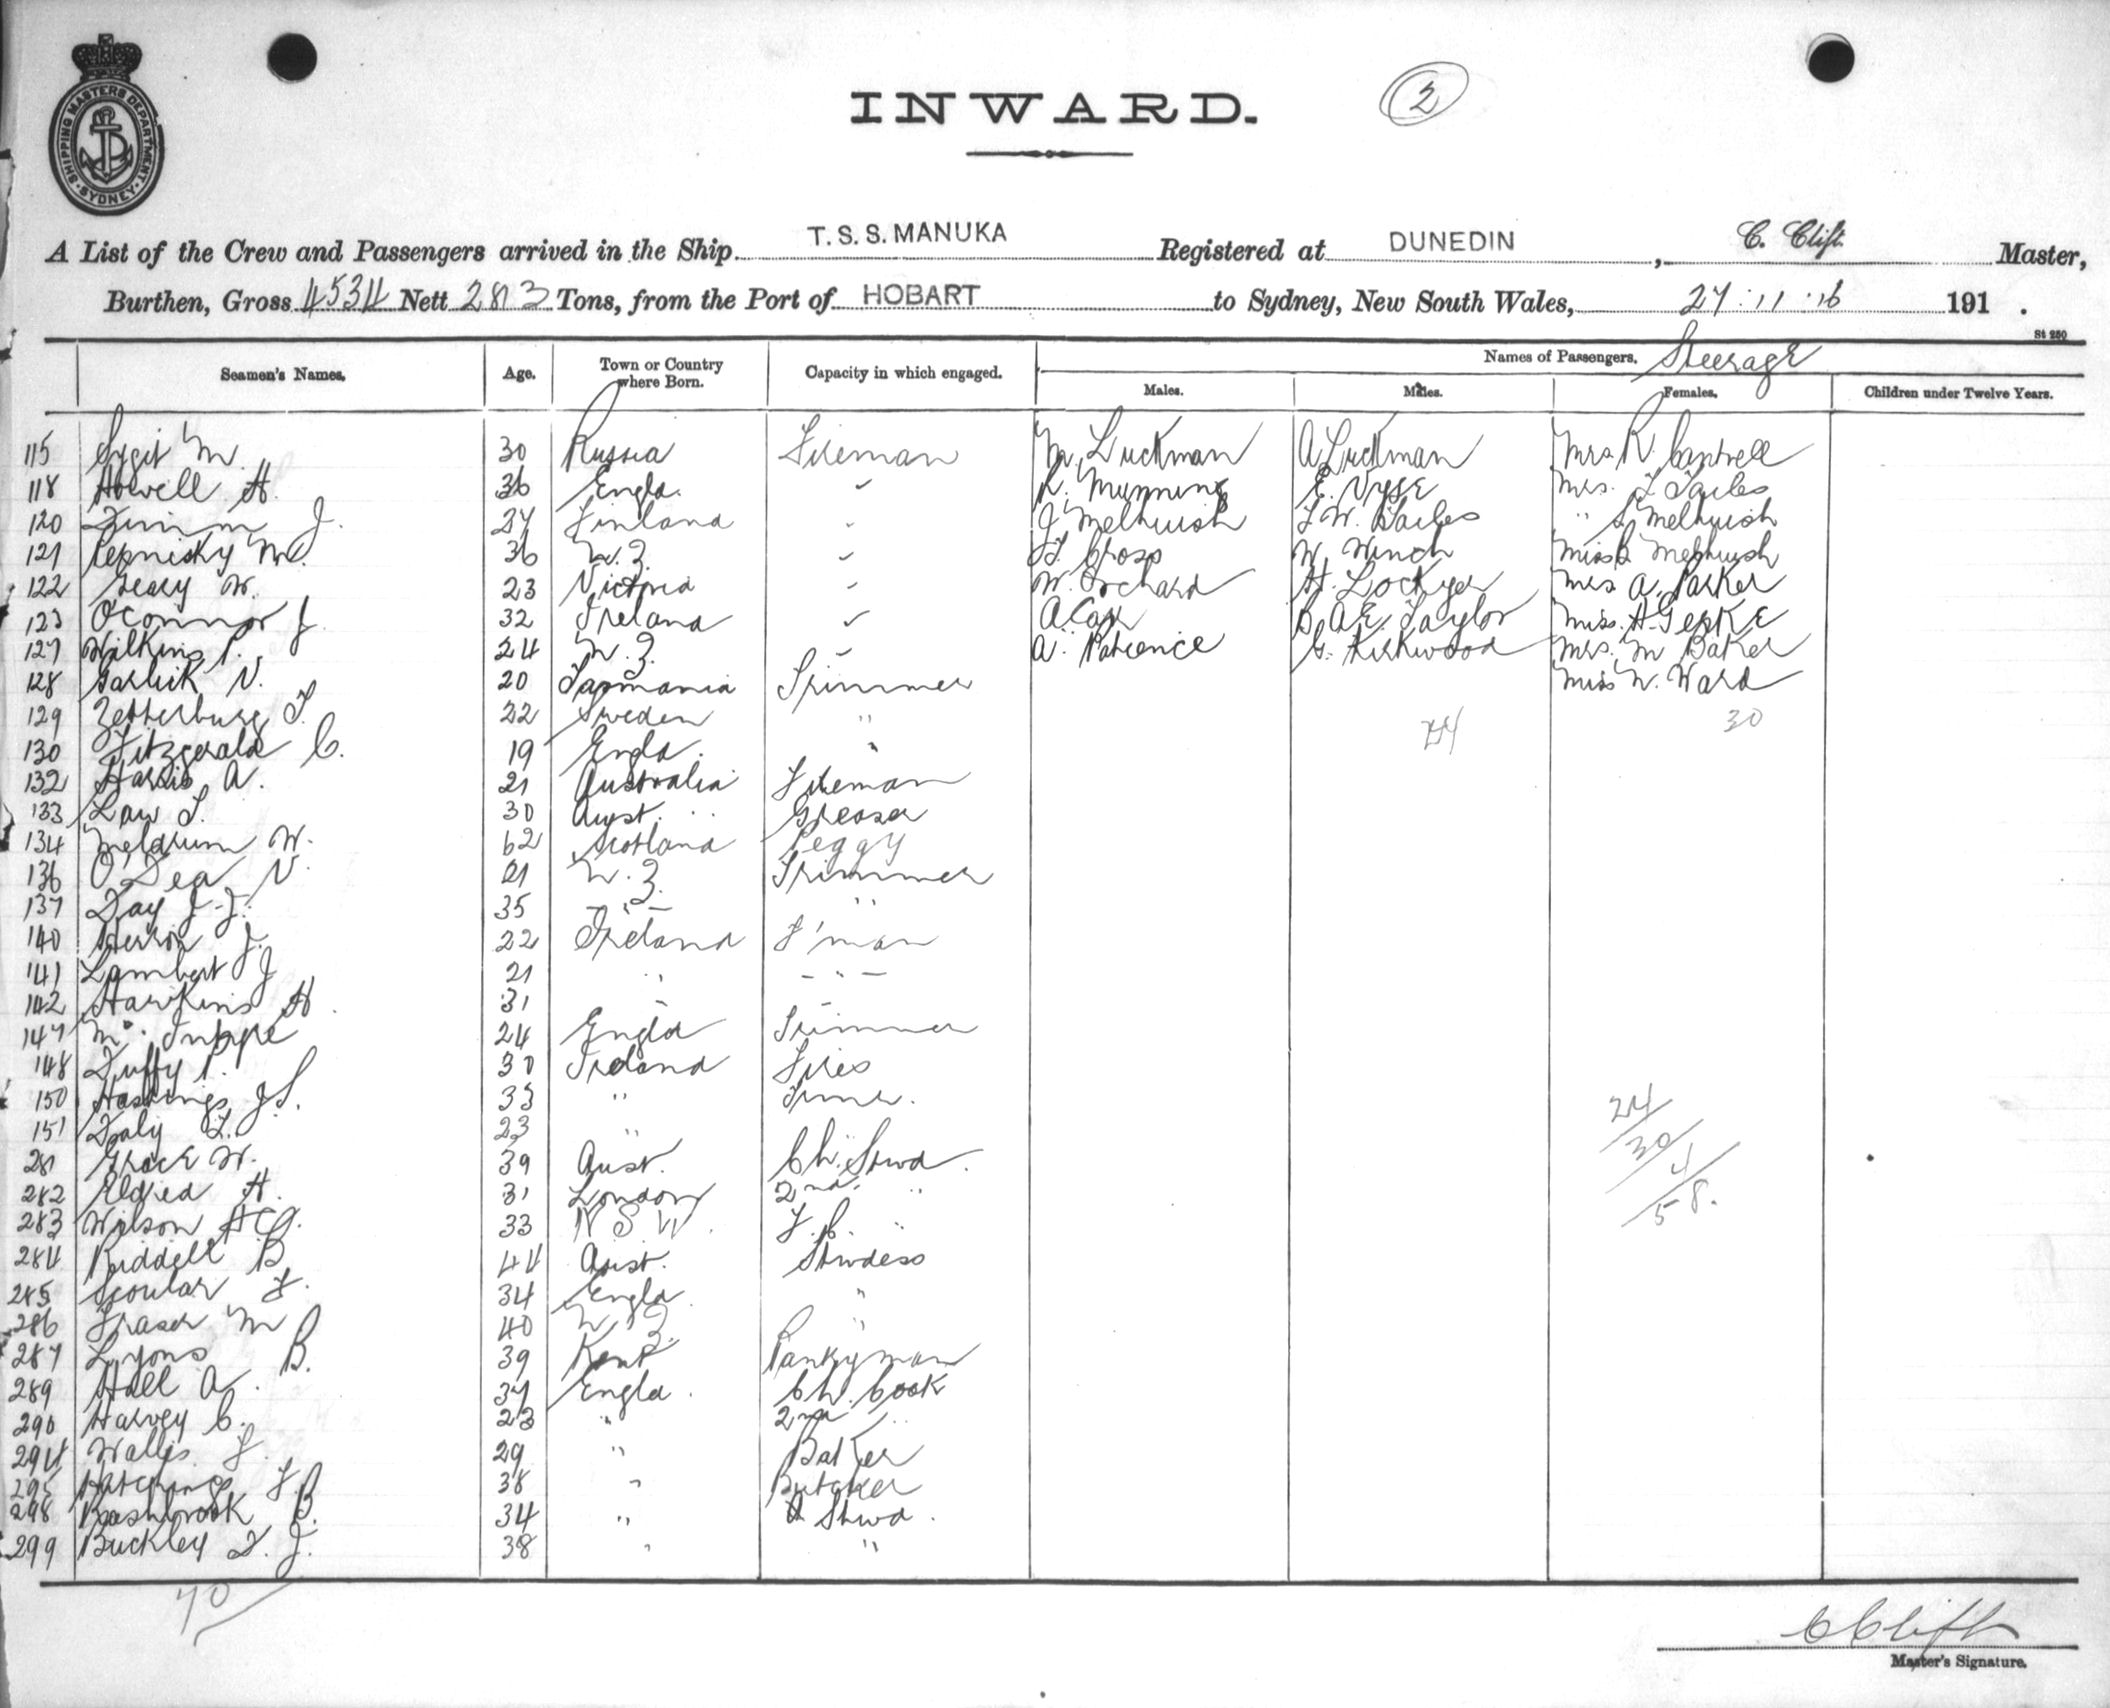 SHIPPING MASTERS DEPARTMENT
SYDNEY
INWARD.
2
A List of the Crew and Passengers arrived in the Ship T.S.S. MANUKA Registered at DUNEDIN, C. Clift Master,
Burthen, Gross 4534 Nett Tons, from the Port of HOBART to Sydney, New South Wales, 27.11.16 191 .
St 250
Seamen's Names. Age. Town or Country where Born. Capacity in which engaged. Names of Passengers. Steerage
Males. Males. Females. Children under Twelve Years.
115 Sygit M. 30 Russia Fireman M. Luckman A Luckman Mrs R. Cantrell
118 Howell H. 36 Engld. R. Munnings E. Vyse Mrs.
120 J. 27 Finland J. Melhuish " Melhuish
121 M. 36 N.Z. Cross W. Winch Miss Melhuish
122 Geary W. 23 Victoria W. Orchard H. Lockyer Mrs A. Parker
123 O'Connor J. 32 Ireland A. Cox A.E. Taylor Miss. H.
127 Wilkins P. 24 N.Z. A. Patience G. Kirkwood Mrs. M Baker
128 Garlick V. 20 Tasmania Trimmer Miss W. Ward
129 Zetterburg 22 Sweden " 30
130 Fitzgerald C. 19 Engld. "
132 Harris A. 21 Australia Fireman
133 Law 30 Aust. Greaser
134 Meldrum W. 62 Scotland Peggy
136 O'Dea V. 21 N.Z. Trimmer
137 Day J.J. 35 - " - "
140 Herron J. 22 Ireland F'man
141 Lambert J 21 " - " -
142 Hawkins H. 31
147 Mc. Intyre 24 Engld Trimmer
148 Duffy P. 30 Ireland Fires
150 Hastings J.S. 33 " Trmr. 24
151 Daly 23 " 30
281 Grace W. 39 Aust. Ch. Stwd. 4
282 Eldred H. 31 London 2nd " 58.
283 Wilson H C G. 33 N S W. F.C. "
284 Riddell B 44 Aust. Stwdess
285 Scoular F. 34 Engld. "
286 Fraser M 40 N Z. "
287 Lyons B. 39 Kent Pantryman
289 Hall A. 37 Engld. Ch. Cook
290 Harvey C. 23 " 2nd "
294 Wallis F. 29 " Baker
295 Hutchings F. 38 " Butcher
298 Bashbrook B. 34 " Stwd.
299 Buckley J. 38 " "
40
C Clift
Master's Signature.